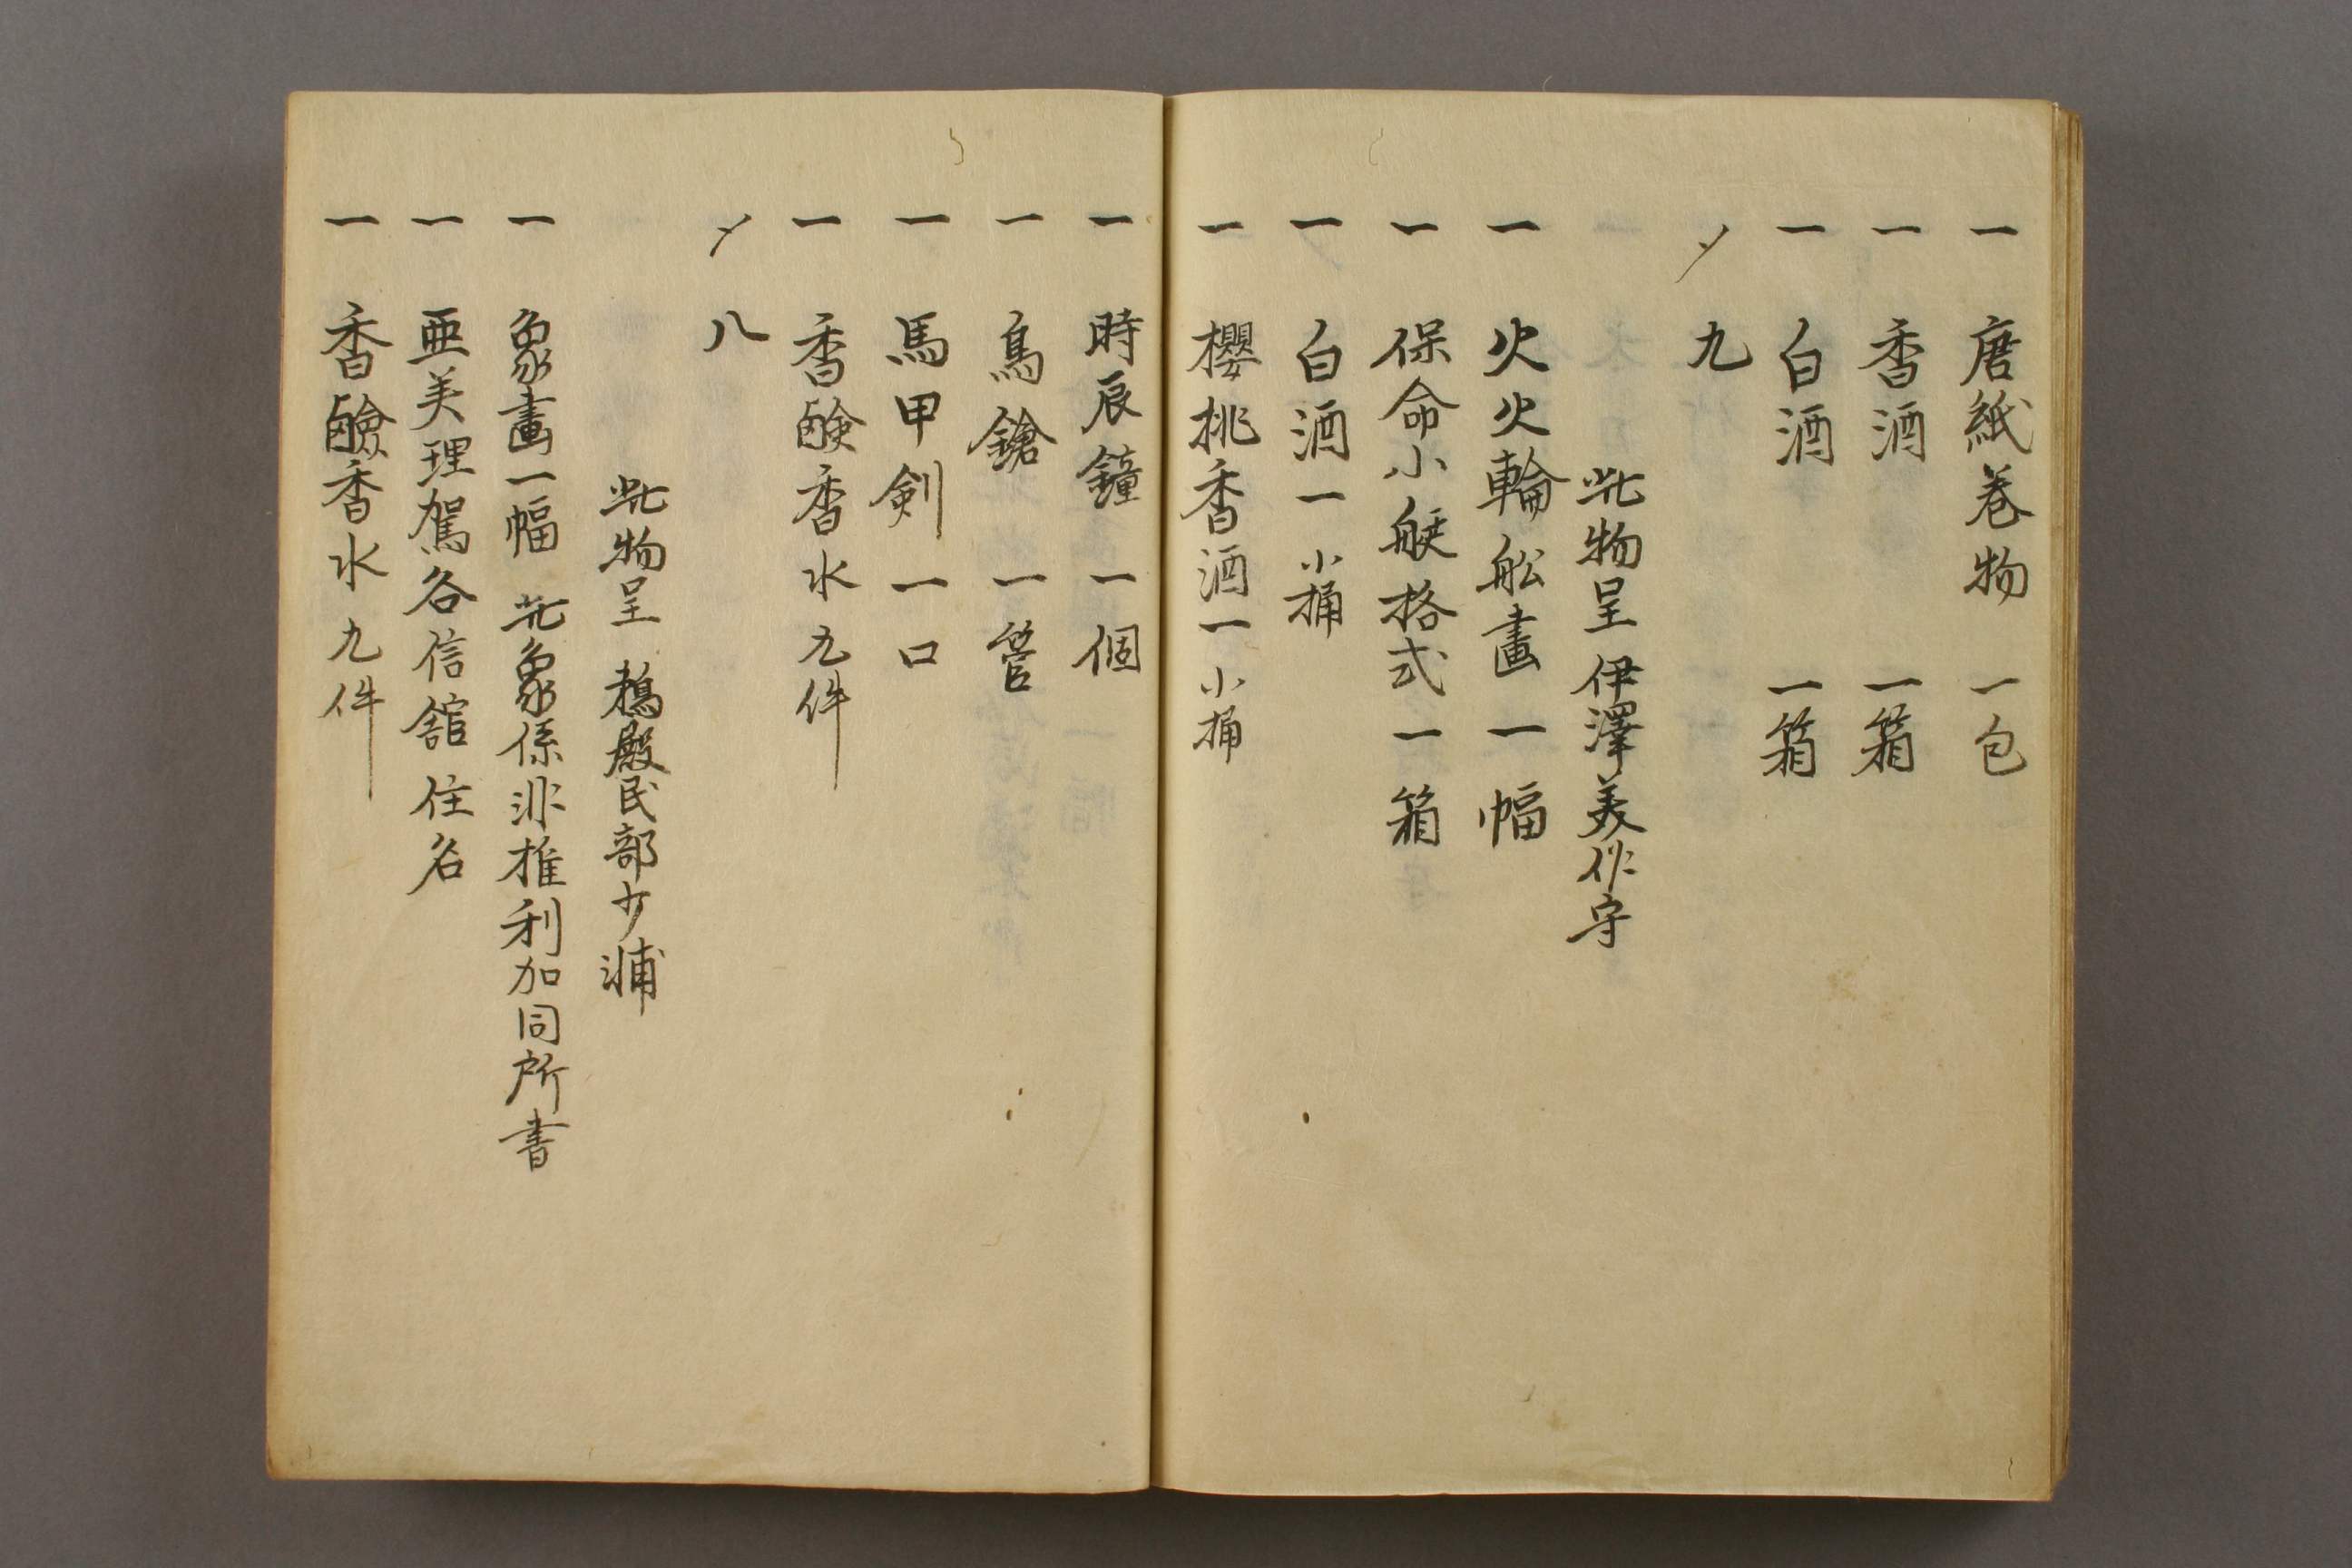 一 唐紙巻物 一包
一 香酒 一箱
一 白酒 一箱
〆 九
此物呈 伊澤美作守
一 火火輪船畫 一幅
一 保命小艇格式一箱
一 白酒一小桶
一 櫻桃香酒一小桶
一 時辰鐘 一個
一 鳥鎗 一管
一 馬甲剣 一口
一 香鹸香水九件
〆 八
此物呈 鵜殿民部少浦
一 象畫一幅 此象係非推利加同所書
一 亜美理駕各信舘住名
一 香鹼香水九件